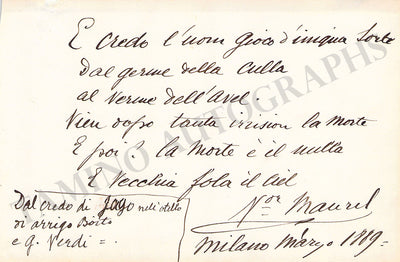 E credo l'uom gioco d'iniqua sorte
Dal germe della culla
al verme dell'avel.
Vien dopo tanta irrision la Morte
E poi? la Morte è il nulla
È vecchia fola il ciel
Dal credo di Jago nell'otello
di arrigo Boito
e G. Verdi =.
Vor Maurel
Milano marzo 1889=
TAMINO AUTOGRAPHS